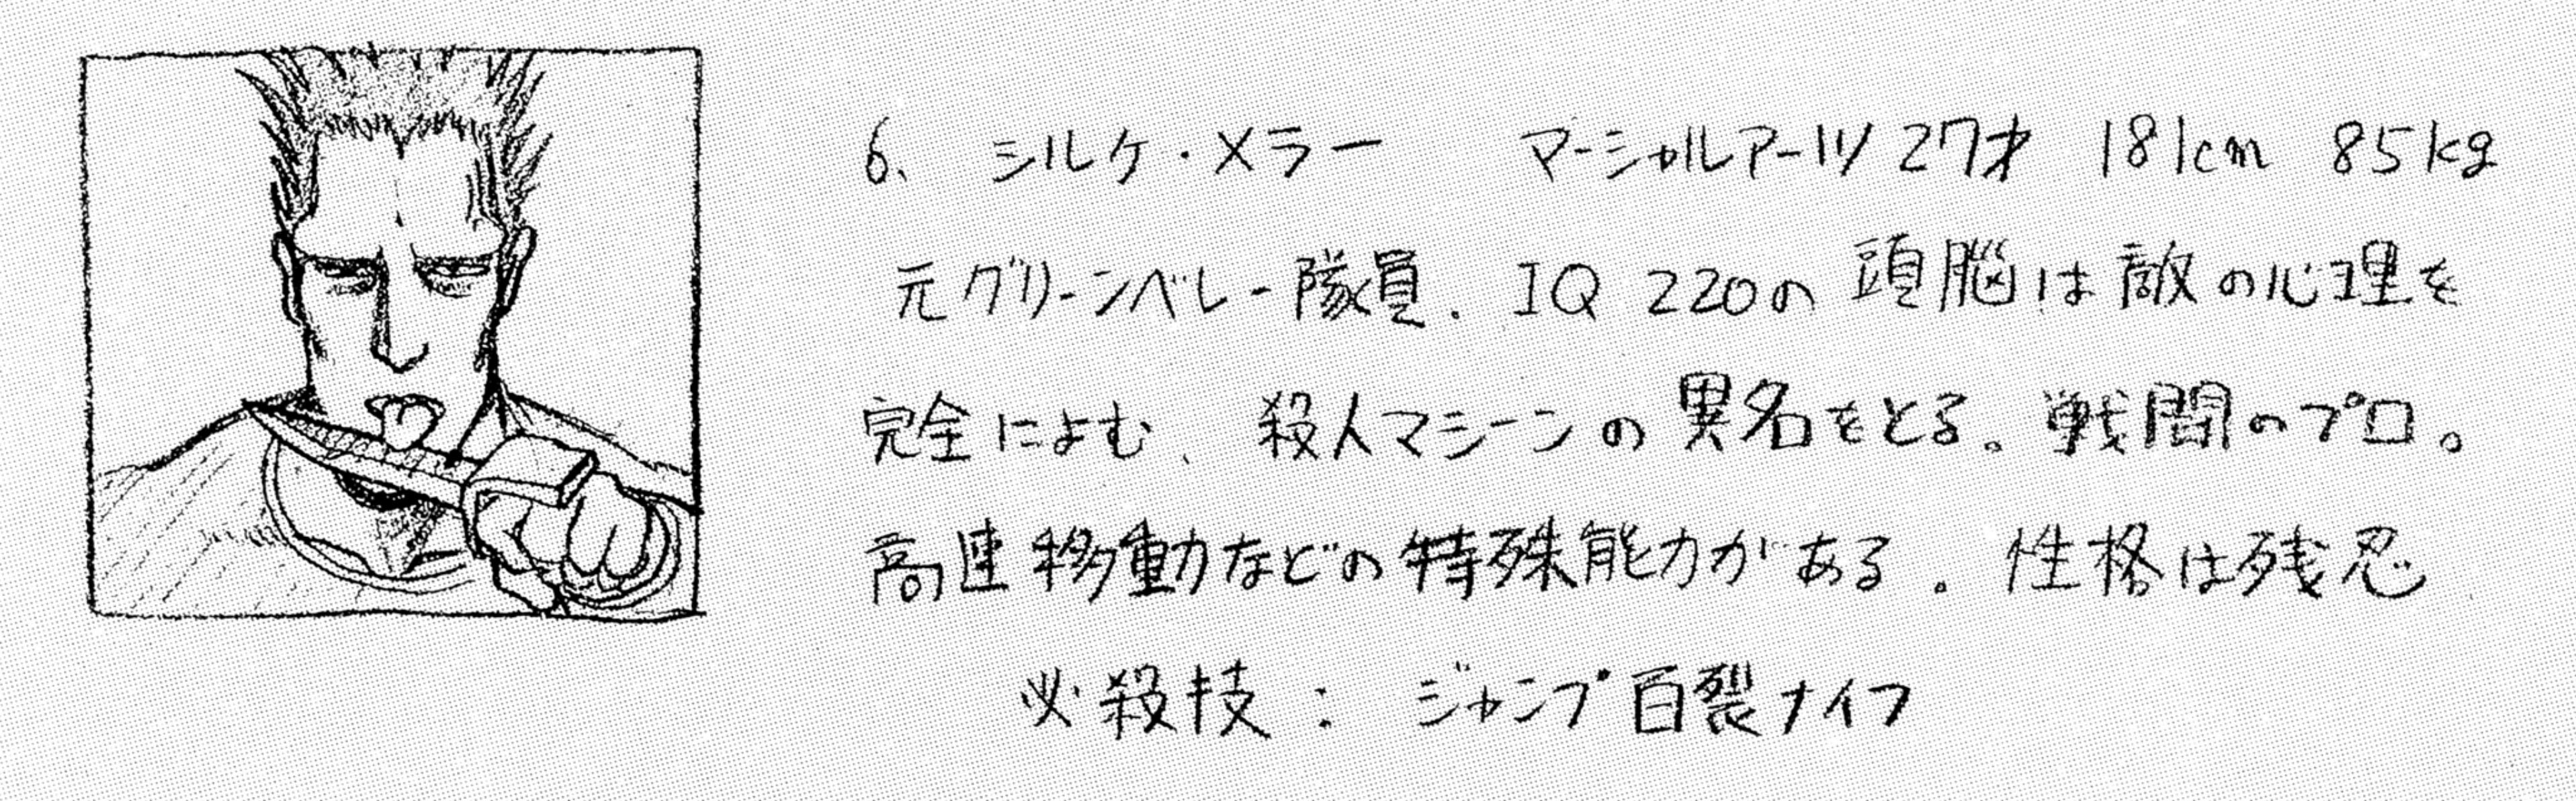 6、 シルケ・メラー マーシャルアーツ 27才 181cm 85kg
元グリーンベレー隊員. IQ 220の頭脳は敵の心理を
完全によむ、 殺人マシーンの異名をとる。戦闘のプロ。
高速移動などの特殊能力がある. 性格は残忍
必殺技: ジャンプ百裂ナイフ